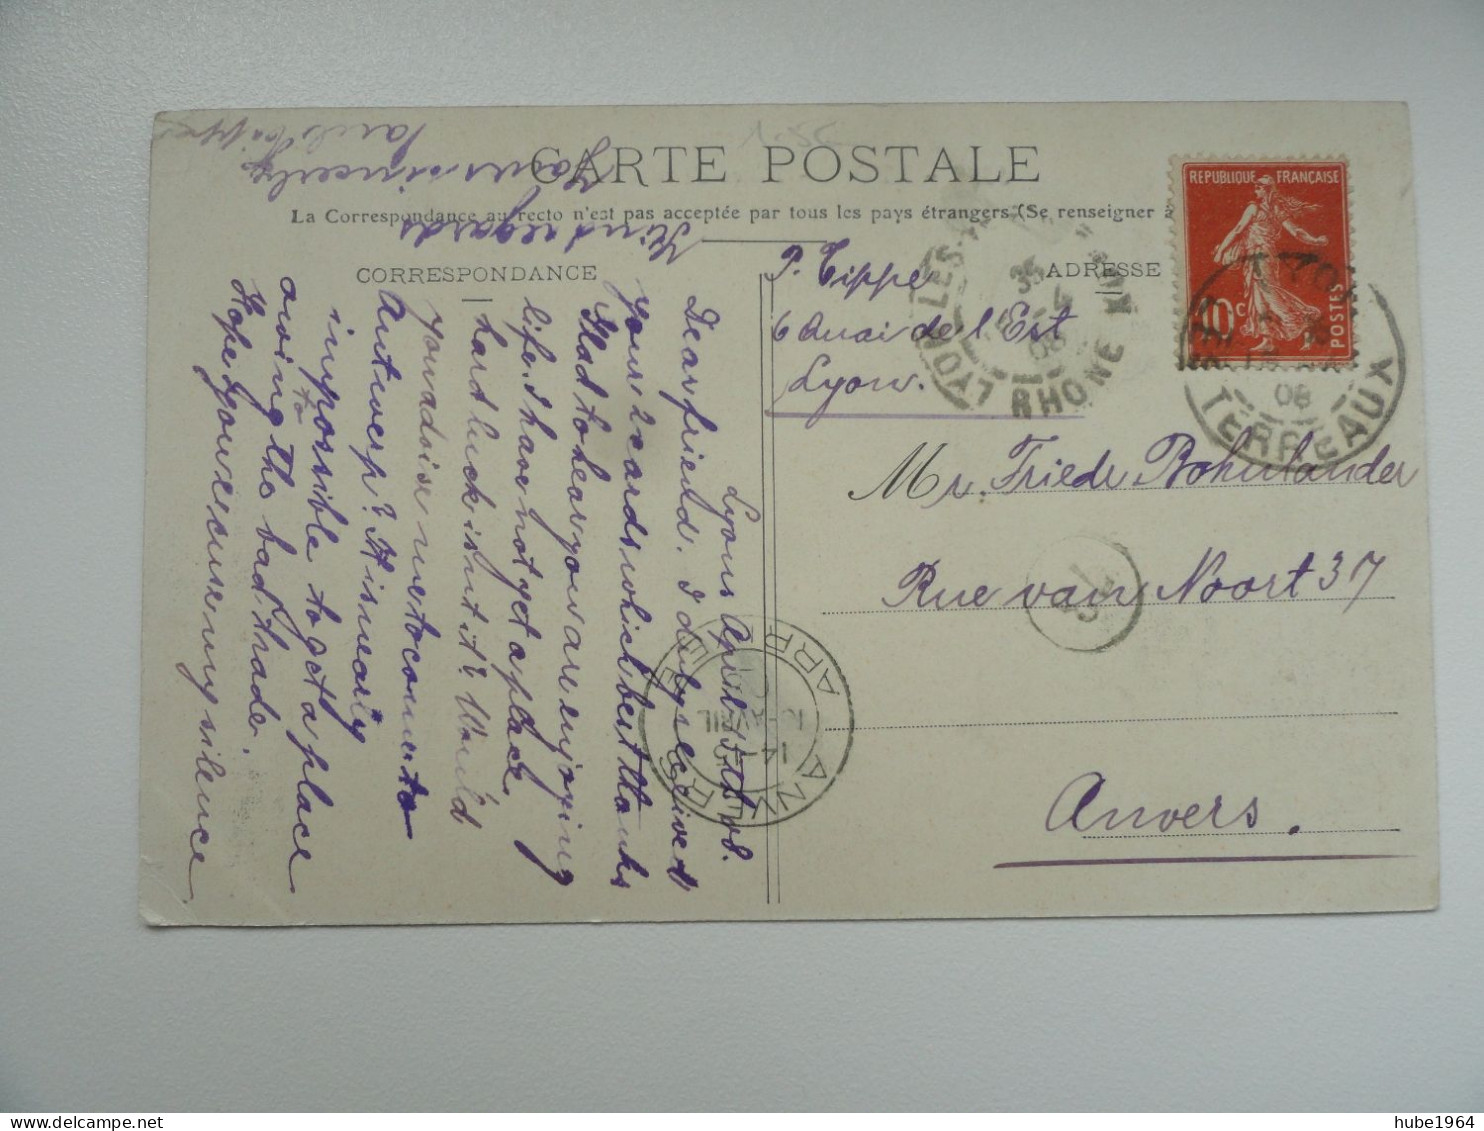 CARTE POSTALE
La Correspondance au recto n'est pas acceptée par tous les pays étrangers (Se renseigner à
CORRESPONDANCE
ADRESSE
REPUBLIQUE FRANÇAISE
10c
POSTES
P. Tippe
6 Quai de l'Est
Lyon.
Mr. Friede Bohnlander
Rue van Noort 37
Anvers.
Lyons April 9th 08.
Dear friend. I duly received
yours 2 cards which best thanks
Glad to hear you are enjoying
life. I have not yet a place.
hard luck isn't it? Would
you adoise me to come to
Antwerp? It is nearly
impossible to get a place
owing to the bad trade.
Hope you excuse my silence
Kind regards
Yours sincerely
LYON-LES-TERREAUX
RHONE
35
08
TERREAUX
08
ANVERS
ARR
14
AVRIL
hube1964